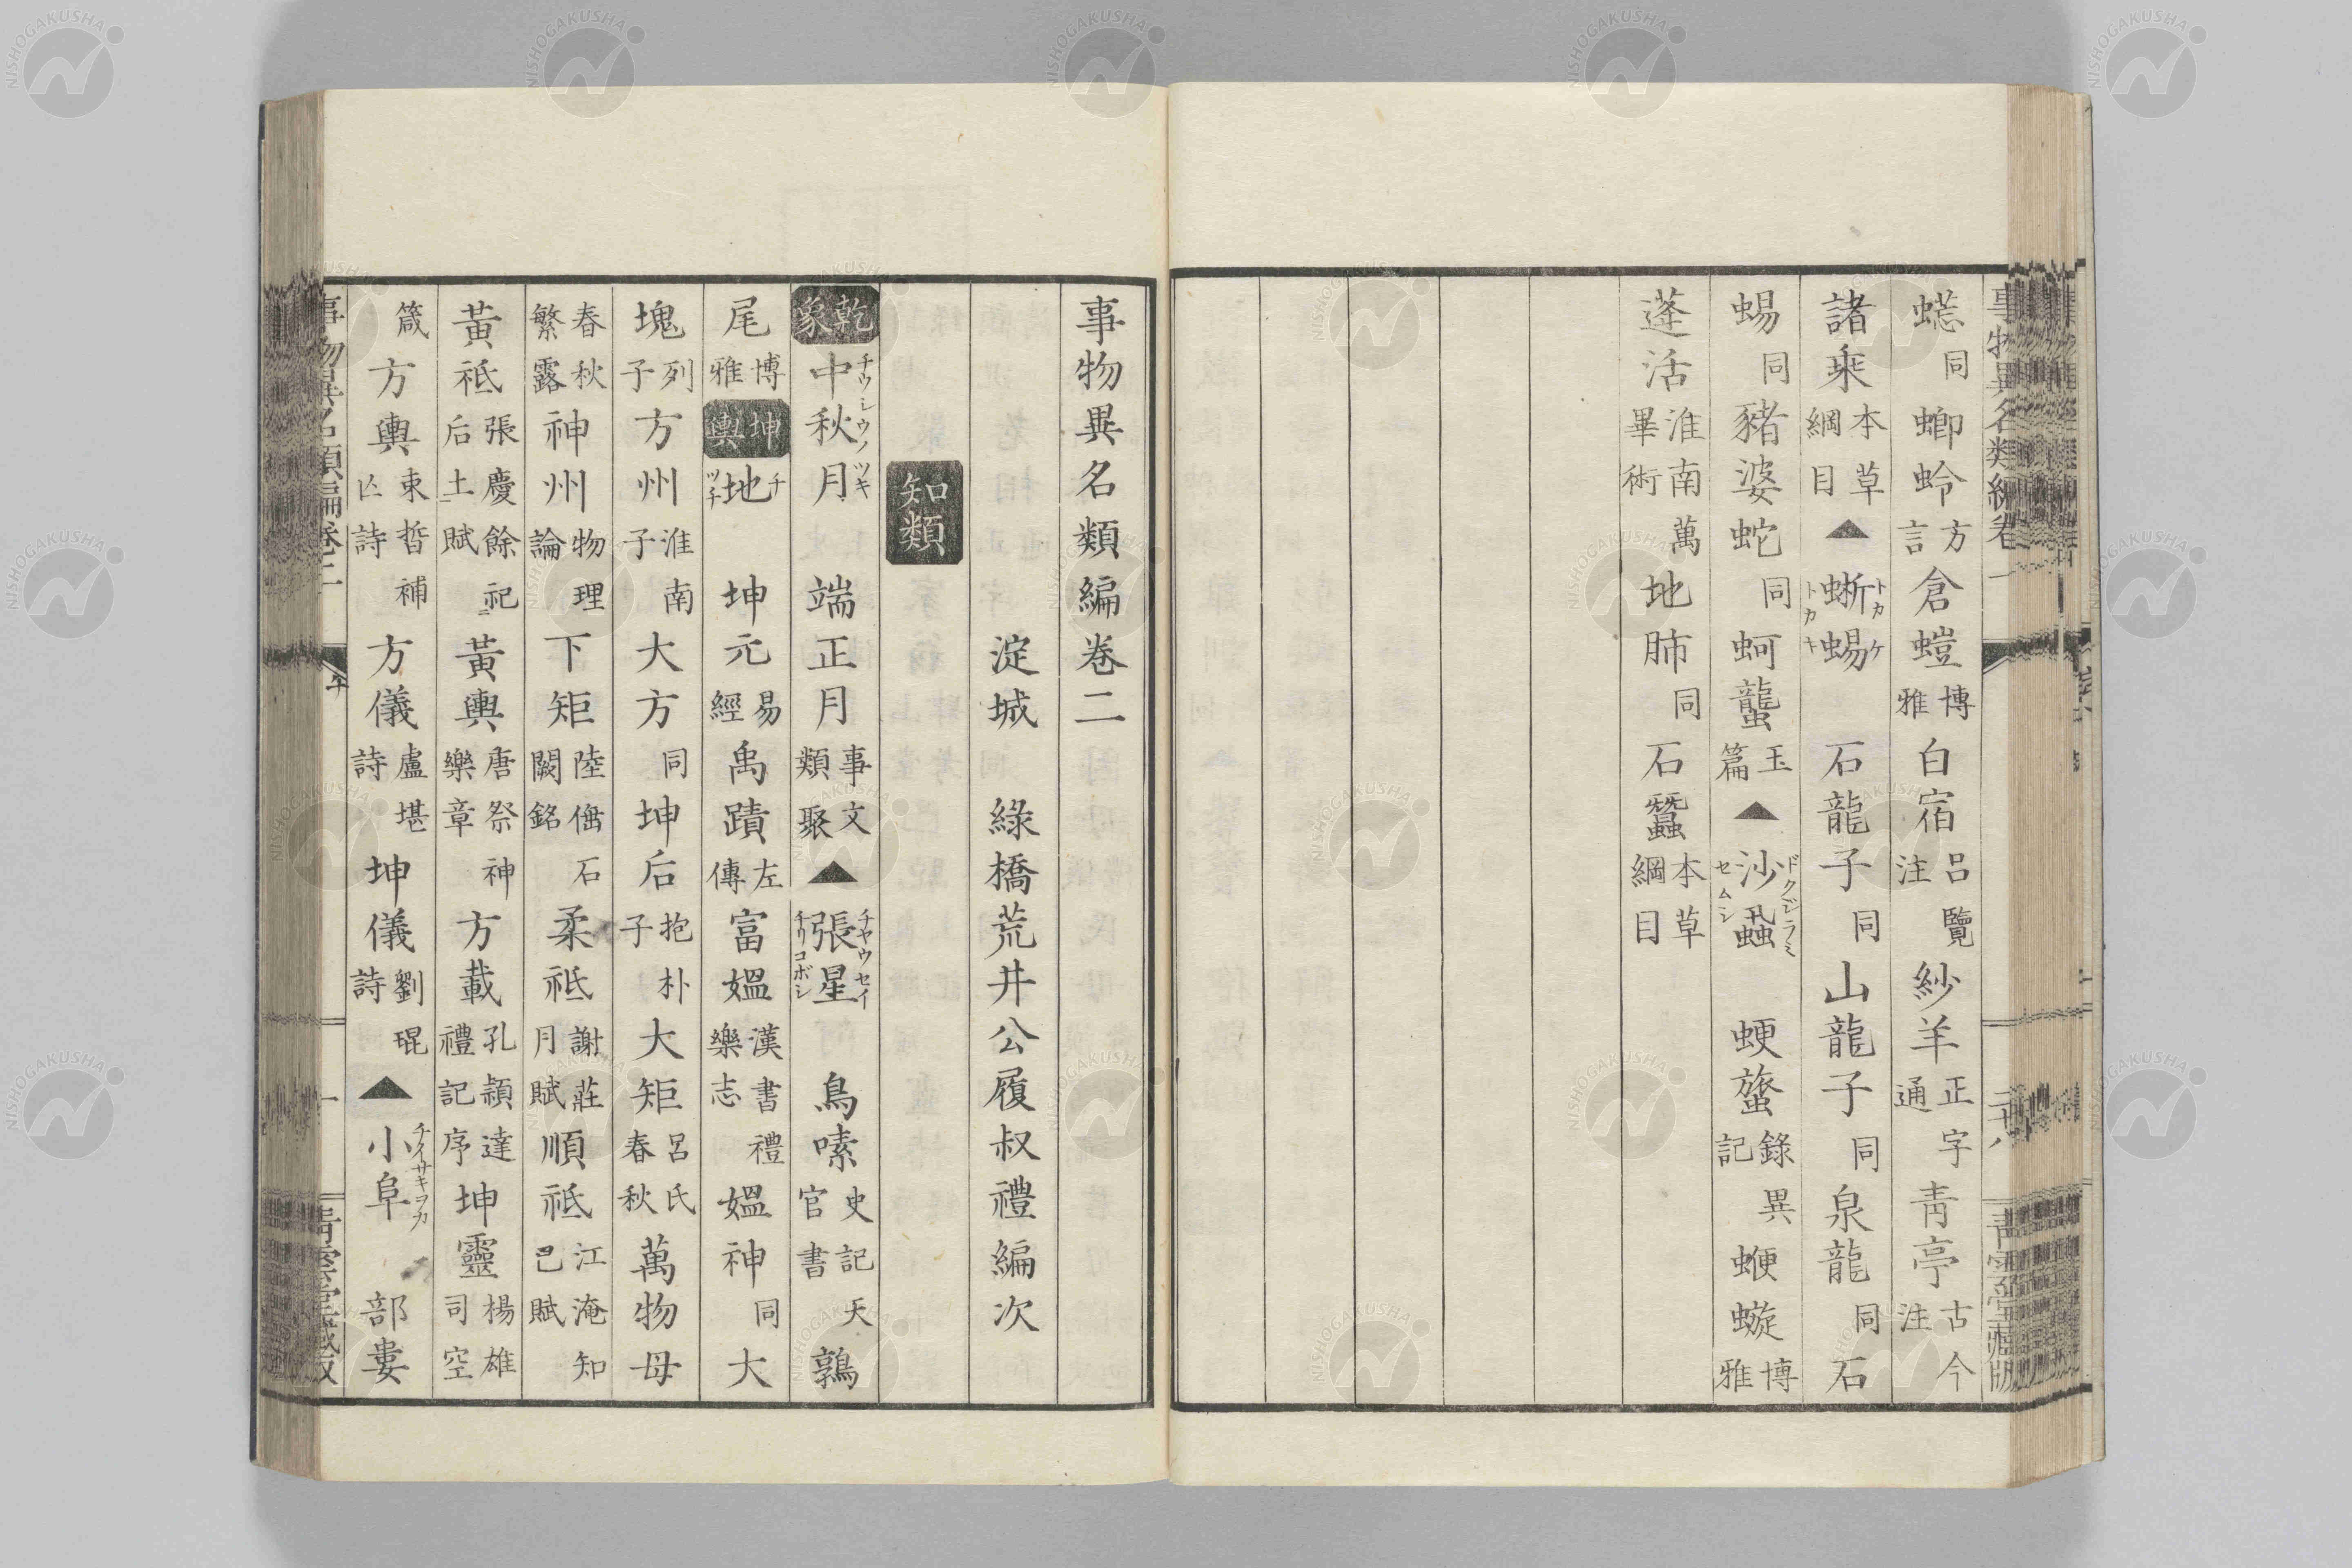 蟋同 蝍蛉方言 倉螘博雅 白宿呂覽注 紗羊正字通 靑亭古今注
諸乘本草綱目 ▲蜥蜴トカケトカキ 石龍子同 山龍子同 泉龍同 石
蜴同 豬婆蛇同 蚵蠪玉篇 ▲沙蝨ドクジラミセムシ 蜫𧎮錄異記 蝘蜁博雅
蓬活淮南萬畢術 地肺同 石蠶本草綱目
事物異名類編卷二
淀城 綠橋荒井公履叔禮編次
知類
乾象 中秋月チウシウノツキ 端正月事文類聚 ▲張星チヤウセイチリコボシ 鳥嗉史記天官書 鶉
尾博雅 坤輿 地チツチ 坤元易經 禹蹟左傳 富媼漢書禮樂志 媼神同 大
塊列子 方州淮南子 大方同 坤后抱朴子 大矩呂氏春秋 萬物母
春秋繁露 神州物理論 下矩陸倕石闕銘 柔祗謝莊月賦 順祗江淹知己賦
黃祗張慶餘祀后土賦 黃輿唐祭神樂章 方載孔穎達禮記序 坤靈楊雄司空
箴 方輿束晳補亡詩 方儀盧堪詩 坤儀劉琨詩 ▲小阜チイサキヲカ 部婁